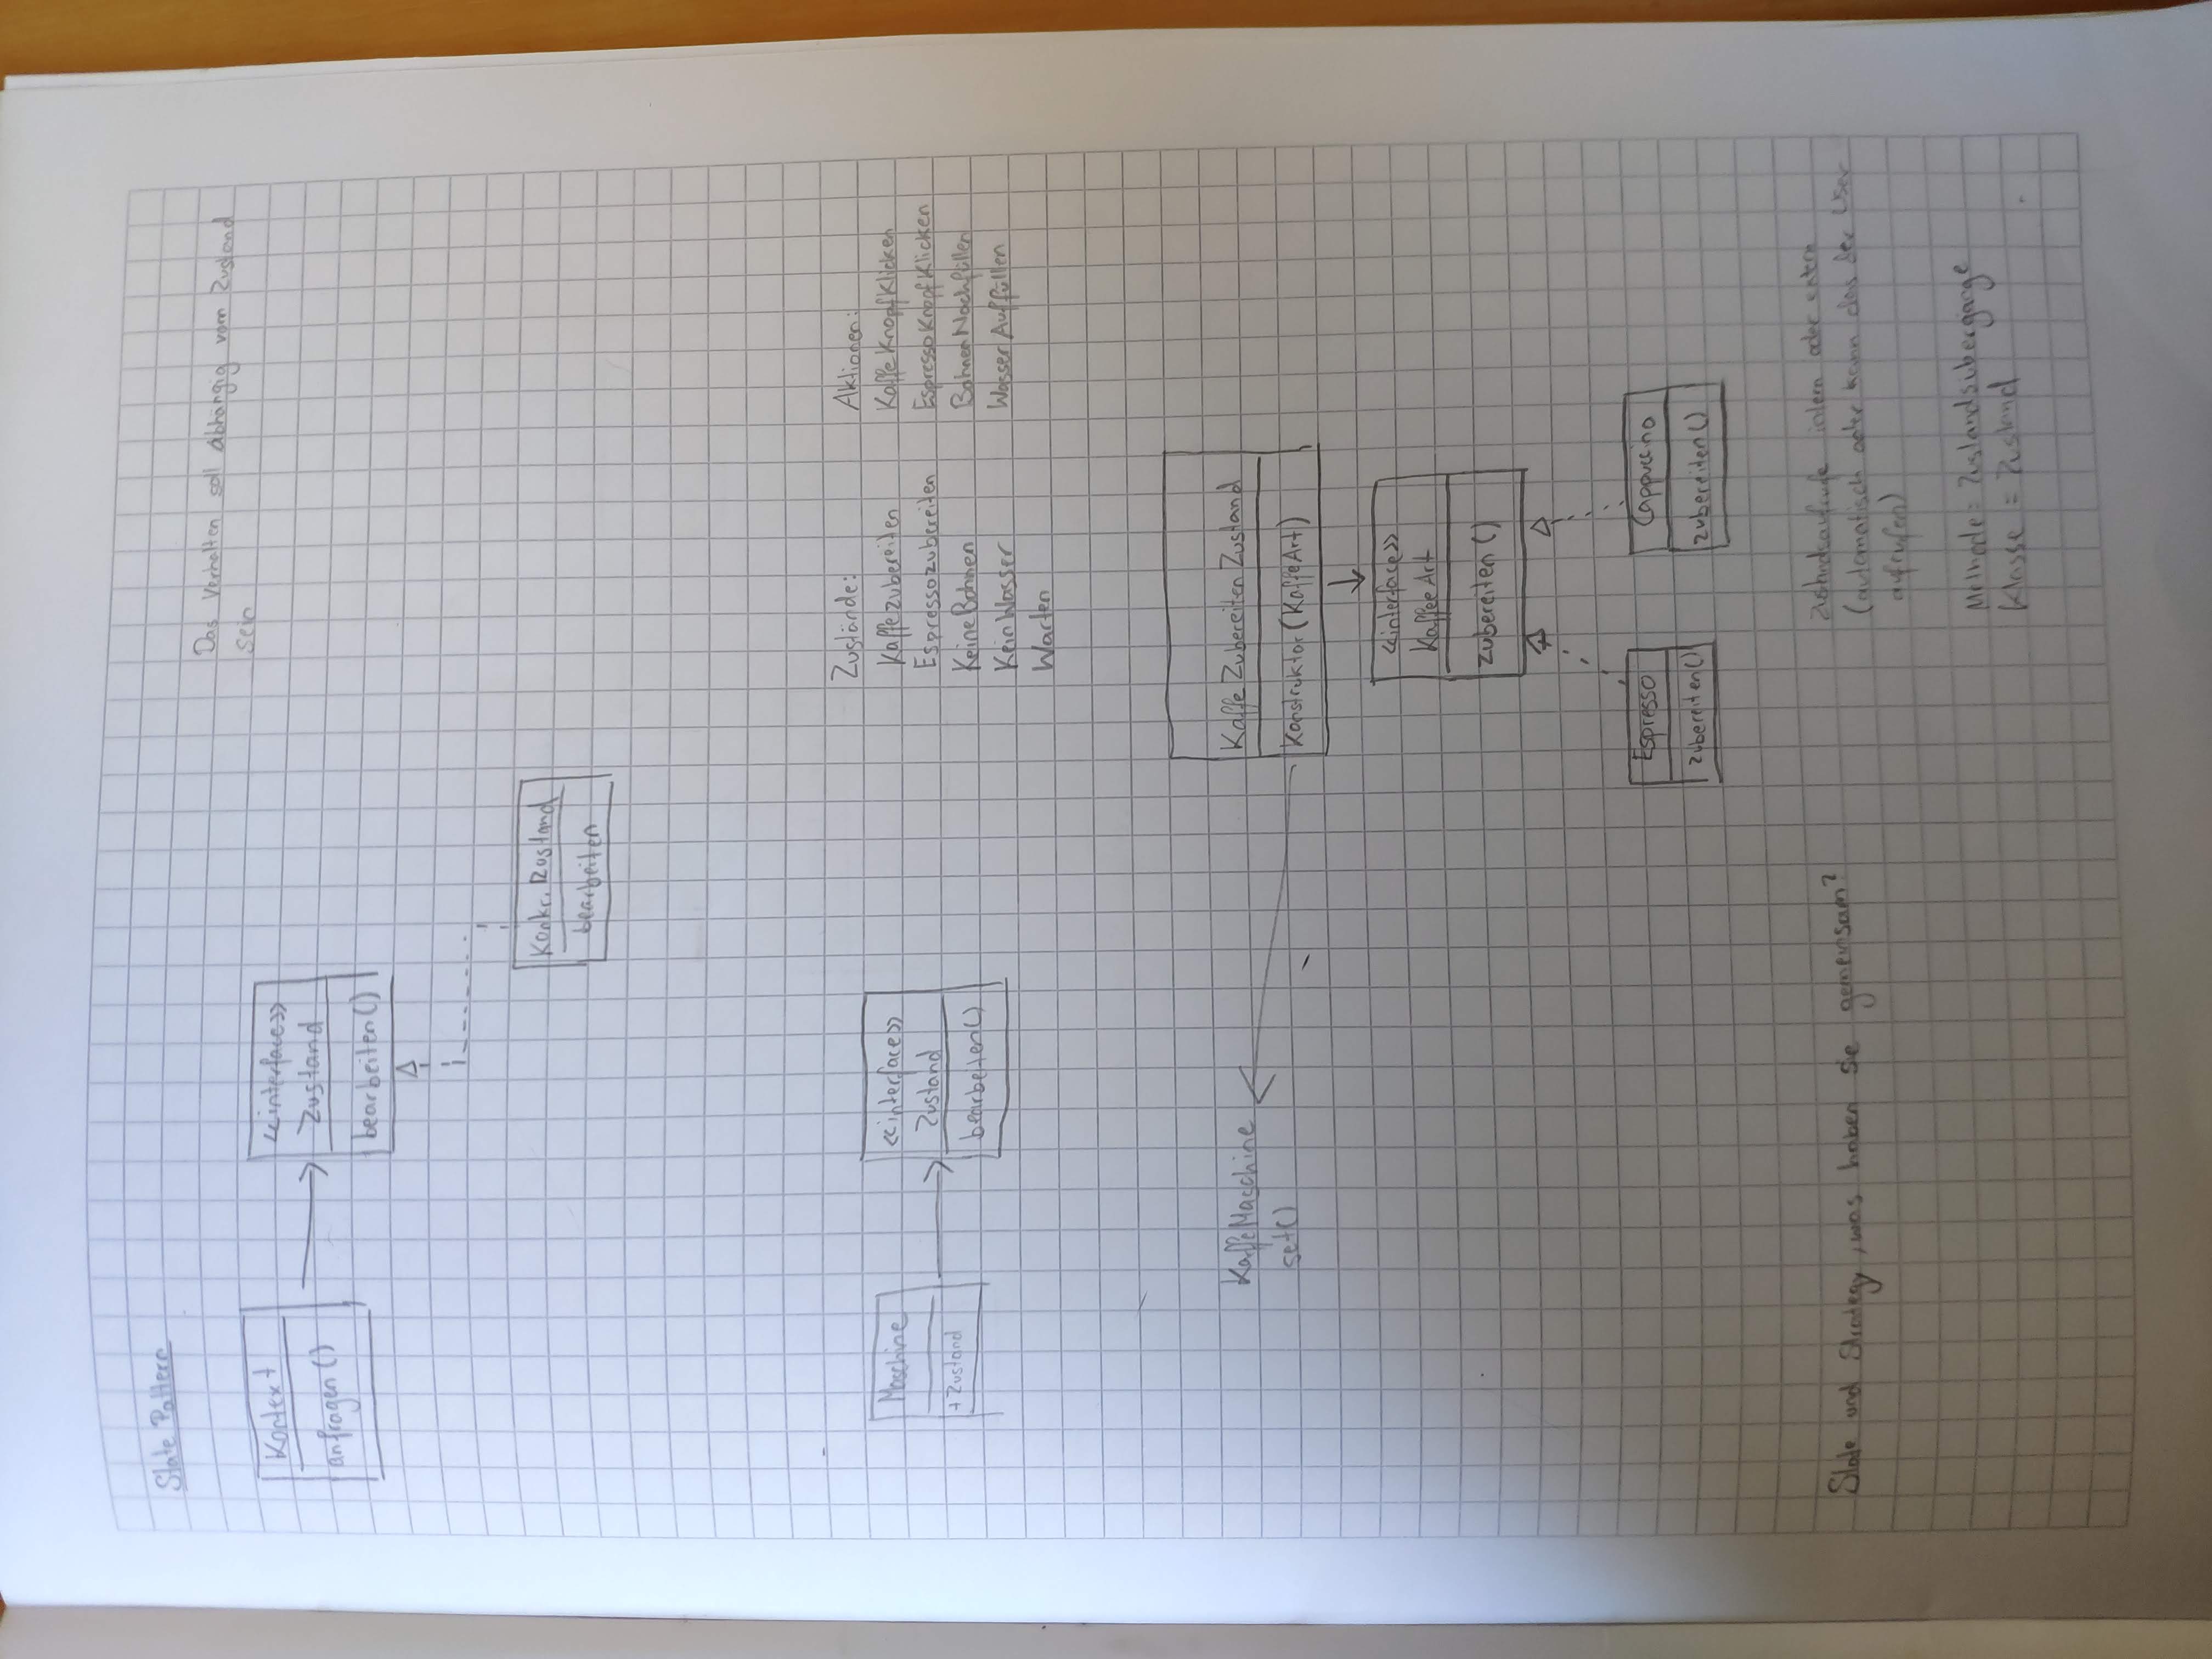 State Pattern
Das Verhalten soll abhängig vom Zustand
sein
Kontext
anfragen()
<<interface>>
Zustand
bearbeiten()
Konkr. Zustand
bearbeiten
Maschine
+Zustand
<<interface>>
Zustand
bearbeiten()
Zustände:
Kaffezubereiten
Espressozubereiten
KeineBohnen
KeinWasser
Warten
Aktionen:
KaffeKnopfKlicken
EspressoKnopfKlicken
BohnenNachfüllen
WasserAuffüllen
KaffeMaschine
set()
KaffeZubereitenZustand
Konstruktor(KaffeArt)
<<interface>>
KaffeeArt
zubereiten()
Espresso
zubereiten()
Cappuccino
zubereiten()
State und Strategy, was haben sie gemeinsam?
Zustandsaufrufe intern oder extern
(automatisch oder kann das der User
aufrufen)
Methode = Zustandsübergänge
Klasse = Zustand